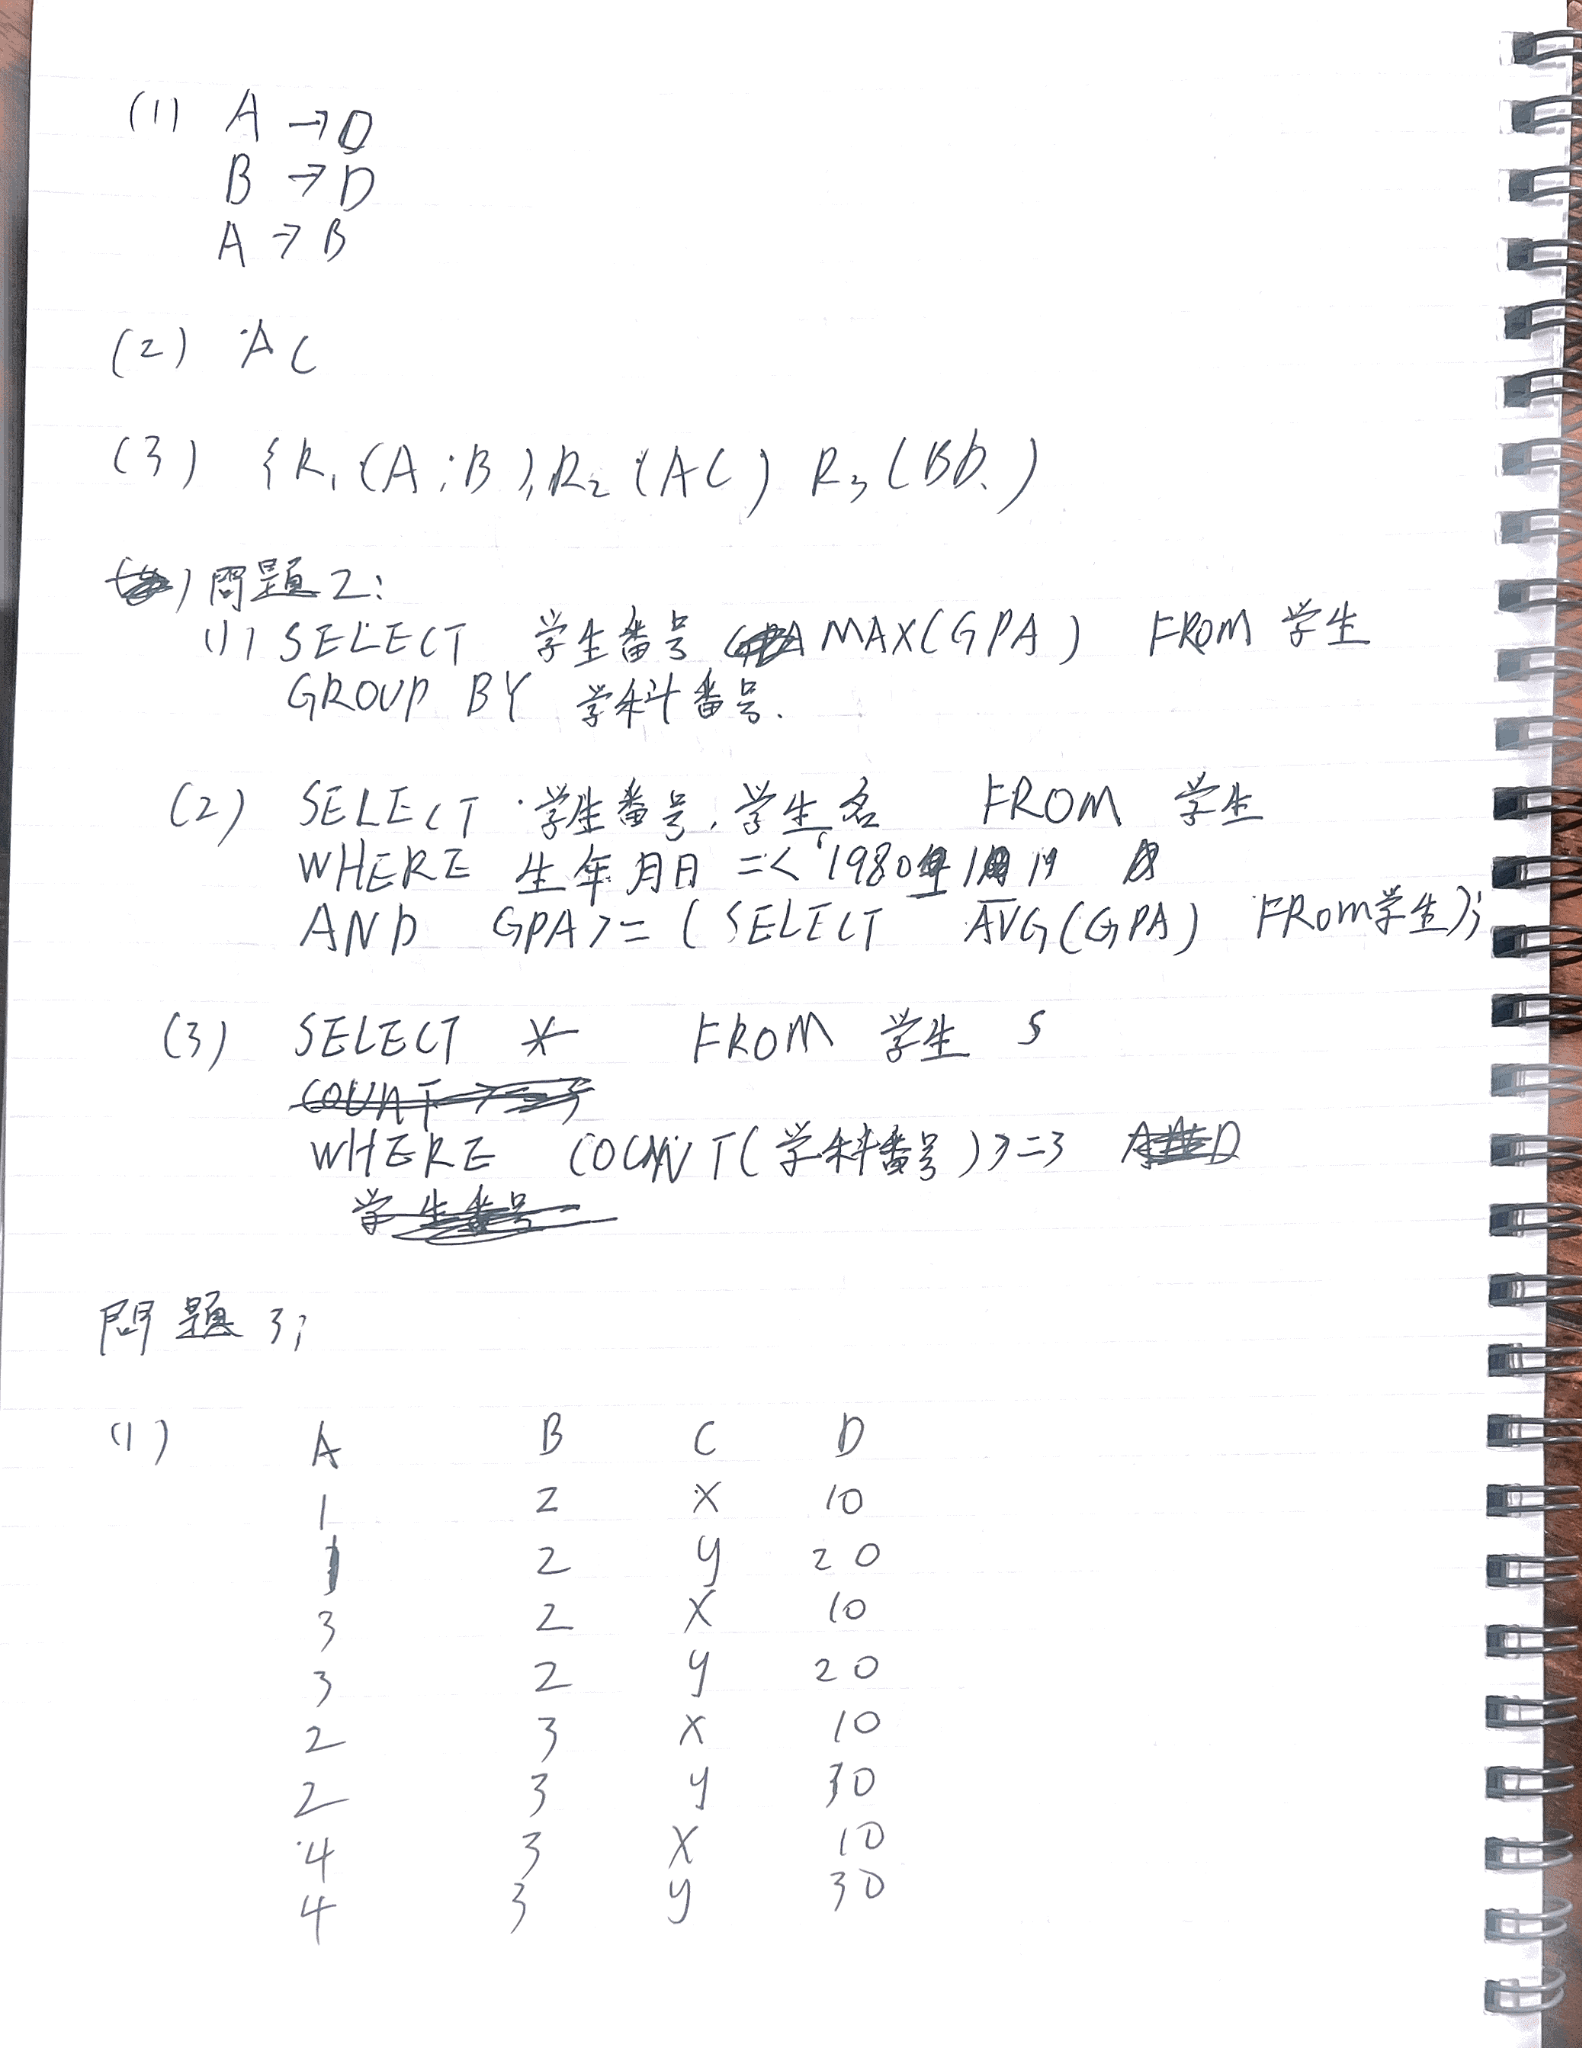 (1) A → D
B → D
A → B
(2) AC
(3) {R1(A,B), R2(AC) R3(BD.)
問題2:
(1) SELECT 学生番号 MAX(GPA) FROM 学生
GROUP BY 学科番号.
(2) SELECT 学生番号, 学生名 FROM 学生
WHERE 生年月日 =< '1980年1月1日
AND GPA >= (SELECT AVG(GPA) FROM学生);
(3) SELECT * FROM 学生 S
COUNT
WHERE COUNT(学科番号) >=3
学生番号
問題3;
(1) A B C D
1 2 X 10
1 2 y 20
3 2 X 10
3 2 y 20
2 3 X 10
2 3 y 30
4 3 X 10
4 3 y 30